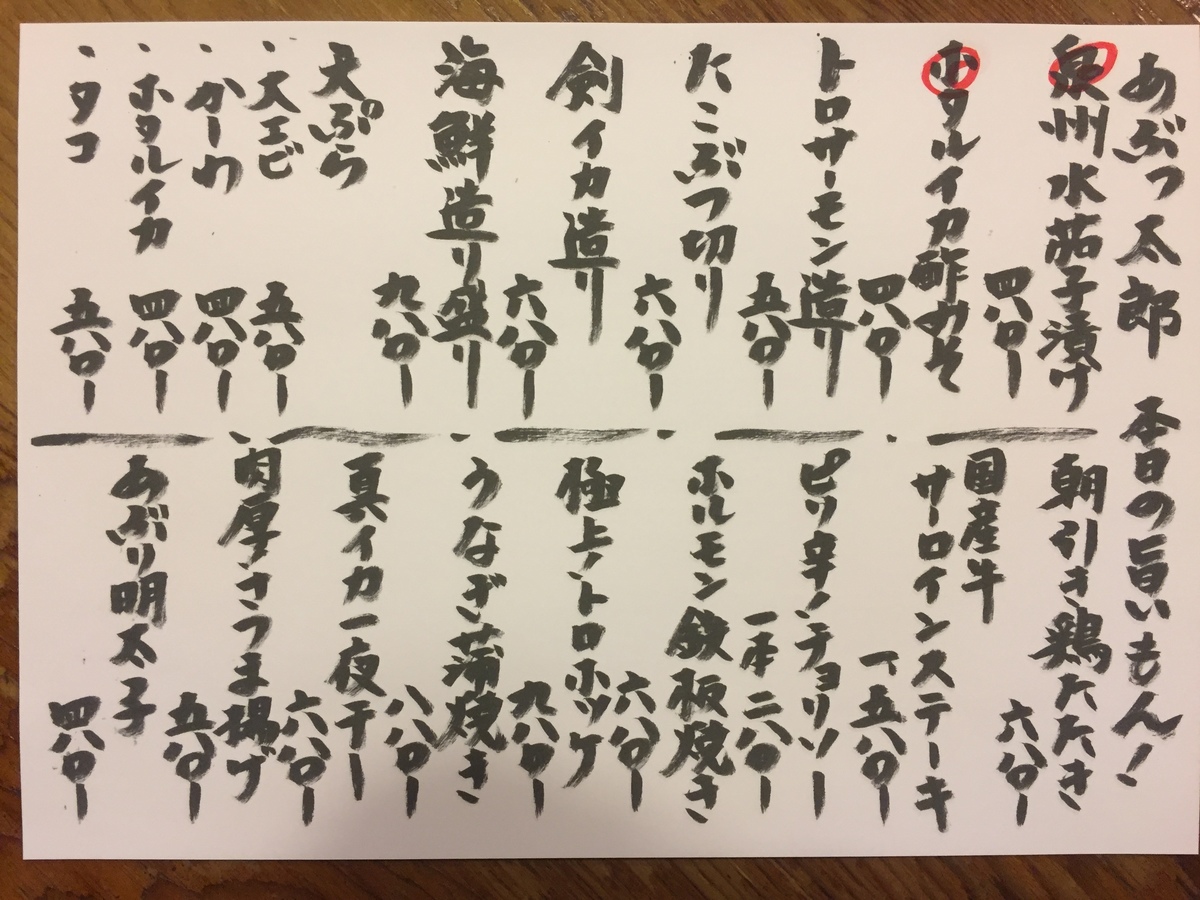 あぶつ太郎 本日の旨いもん!
泉州水茄子漬け
四八〇ー
ホタルイカ酢みそ
四八〇ー
トロサーモン造り
五八〇ー
たこぶつ切り
六八〇ー
剣イカ造り
六八〇ー
海鮮造り盛り
九八〇ー
天ぷら
・大エビ 五八〇ー
・かしわ 四八〇ー
・ホタルイカ 四八〇ー
・タコ 五八〇ー
朝引き鶏たたき
六八〇ー
国産牛
サーロインステーキ
一、五八〇ー
ピリ辛チョリソー
一本 二八〇ー
ホルモン鉄板焼き
六八〇ー
極上トロホッケ
九八〇ー
うなぎ蒲焼き
八八〇ー
真イカ一夜干し
六八〇ー
肉厚さつま揚げ
五八〇ー
あぶり明太子
四八〇ー